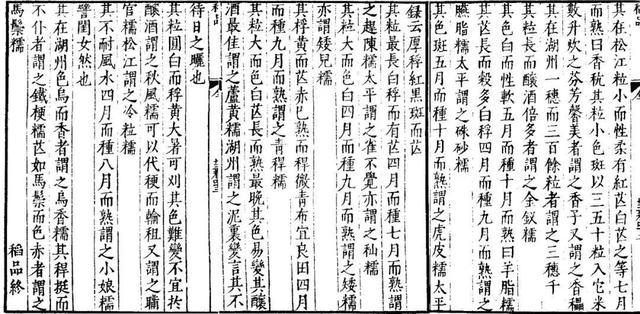 其在松江粒小而性柔有紅芒白芒之等七月
而熟曰香秔其粒小色斑以三五十粒入它米
數升炊之芬芳馨美者謂之香子又謂之香糯
其在湖州一穗而三百餘粒者謂之三穗千
其粒長而釀酒倍多者謂之金釵糯
其色白而性軟五月而種十月而熟曰羊脂糯
其芒長而穀多白稃四月而種九月而熟謂之
臙脂糯太平謂之硃砂糯
其色斑五月而種十月而熟謂之虎皮糯太平
錄云厚稃紅黑斑而芒
其粒最長白稃而有芒四月而種七月而熟謂
之趕陳糯太平謂之雀不覺亦謂之秈糯
其粒大而色白四月而種九月而熟謂之矮糯
亦謂矮兒糯
其稃黃而芒赤已熟而稈微青布宜良田四月
而種九月而熟謂之青稈糯
其粒大而色白芒長而熟最晚其色易變其釀
酒最佳謂之蘆黃糯湖州謂之泥裏變言其不
待日之曬也
其粒圓白而稃黃大暑可刈其色難變不宜於
釀酒謂之秋風糯可以代粳而輸租又謂之瞞
官糯松江謂之冷粒糯
其不耐風水四月而種八月而熟謂之小娘糯
譬閨女然也
其在湖州色烏而香者謂之烏香糯其稈挺而
不仆者謂之鐵粳糯芒如馬鬃而色赤者謂之
馬鬃糯 稻品終